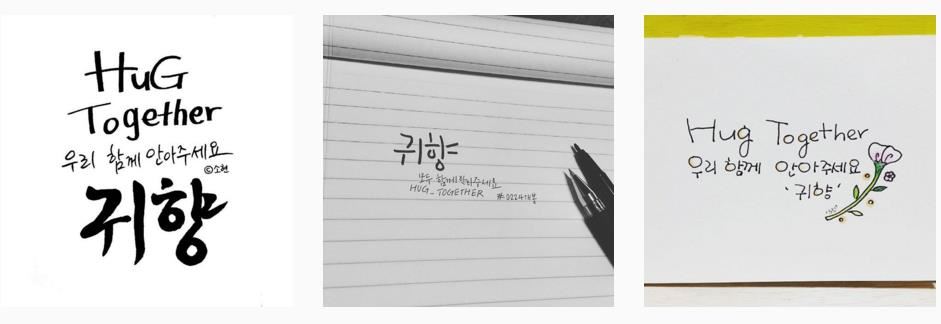 HuG
Together
우리 함께 안아주세요
©소천
귀향
귀향
모두 함께해주세요
HUG_TOGETHER #0224개봉
Hug Together
우리 함께 안아주세요
'귀향'